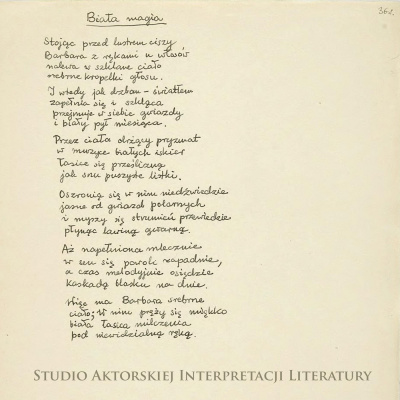 Biała magia
368.
Stojąc przed lustrem ciszy
Barbara z rękami u włosów
nalewa w szklane ciało
srebrne kropelki głosu.
I wtedy jak dzban – światłem
zapełnia się i szkląca
przejmuje w siebie gwiazdy
i biały pył miesiąca.
Przez ciała drżący pryzmat
w muzyce białych iskier
łasice się prześlizną
jak snu puszyste listki.
Oszronią się w nim niedźwiedzie
jasne od gwiazd polarnych
i myszy się strumień przewiedzie
płynąc lawiną gwarną.
Aż napełniona mlecznie
w sen się powoli zapadnie,
a czas melodyjnie osiądzie
kaskadą blasku na dnie.
Więc ma Barbara srebrne
ciało; w nim pręży się miękko
biała łasica milczenia
pod niewidzialną ręką.
STUDIO AKTORSKIEJ INTERPRETACJI LITERATURY